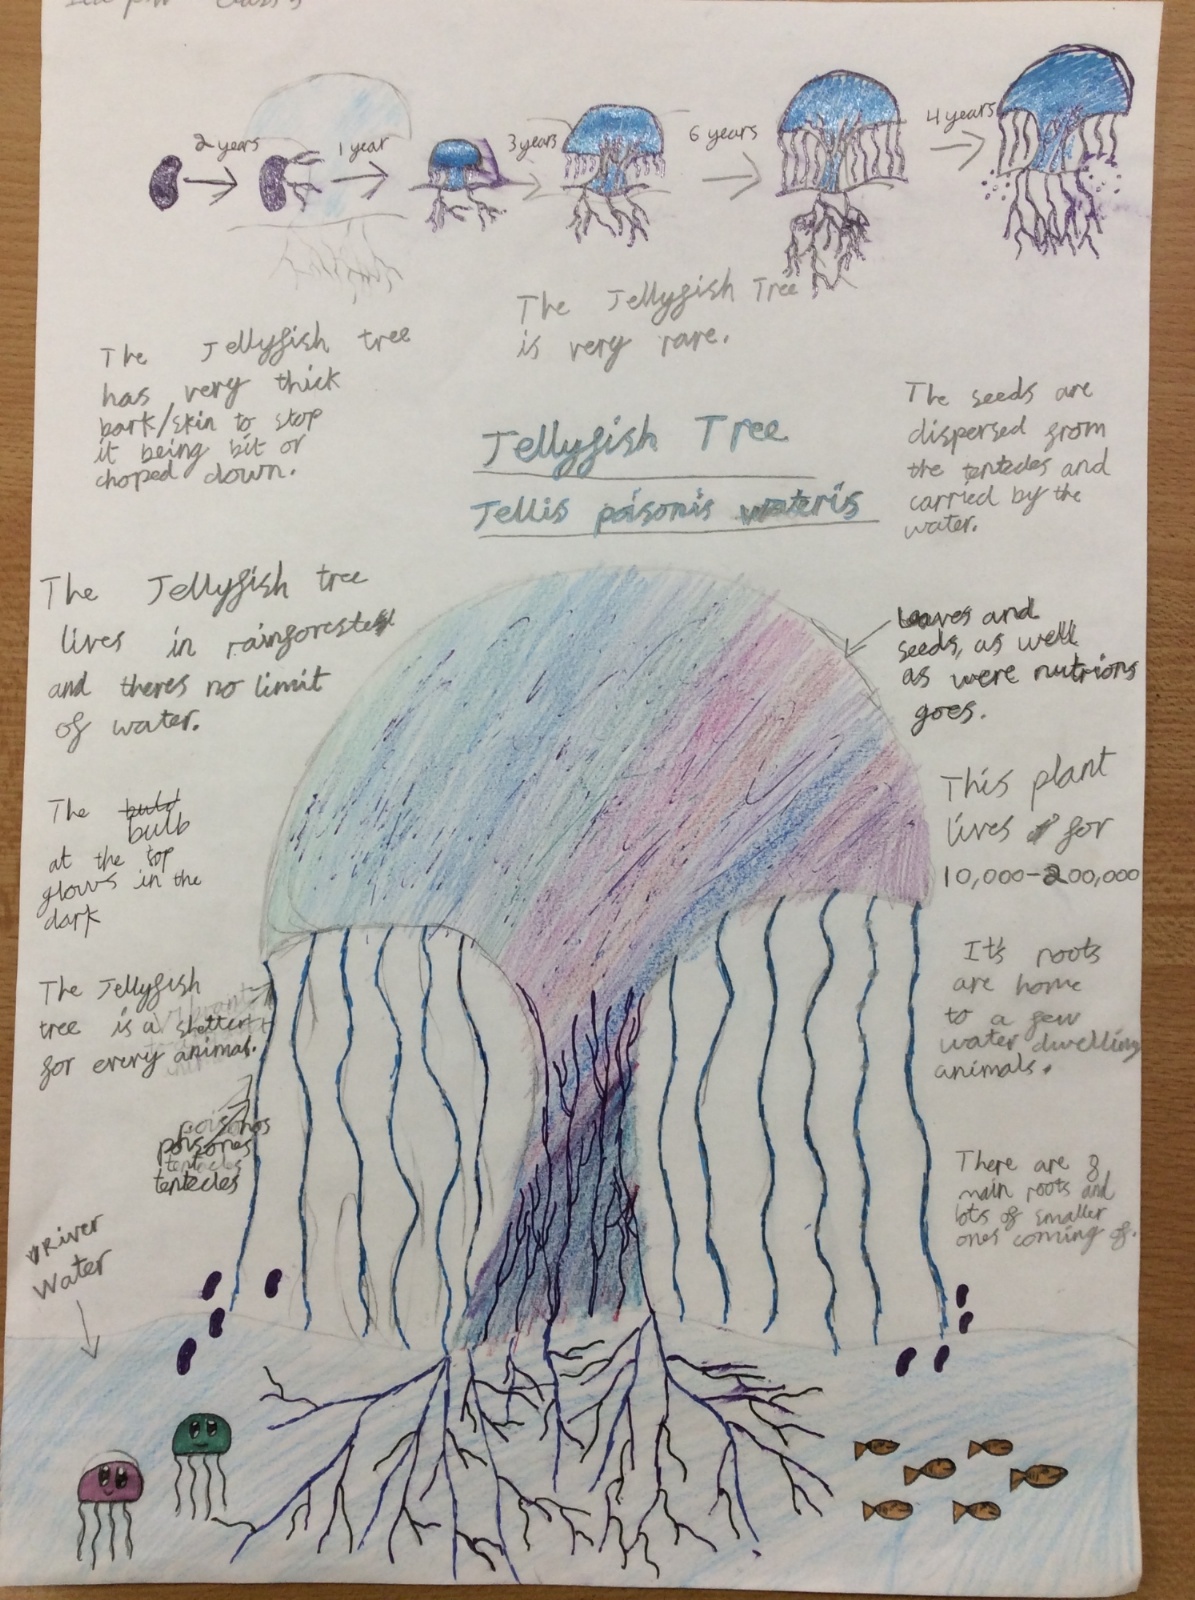 2 years
1 year
3 years
6 years
4 years
The Jellyfish Tree
is very rare.
The Jellyfish tree
has very thick
bark/skin to stop
it being bit or
choped down.
Jellyfish Tree
Jellis poisonis wateris
The seeds are
dispersed from
the tentecles and
carried by the
water.
The Jellyfish tree
lives in rainforests
and theres no limit
of water.
leaves and
seeds, as well
as were nutrions
goes.
The buld
bulb
at the top
glows in the
dark
This plant
lives for
10,000-200,000
The Jellyfish
tree is a shelter
for every animal.
It's roots
are home
to a few
water dwelling
animals.
poisones
tentecles
There are 8
main roots and
lots of smaller
ones coming of.
River
Water